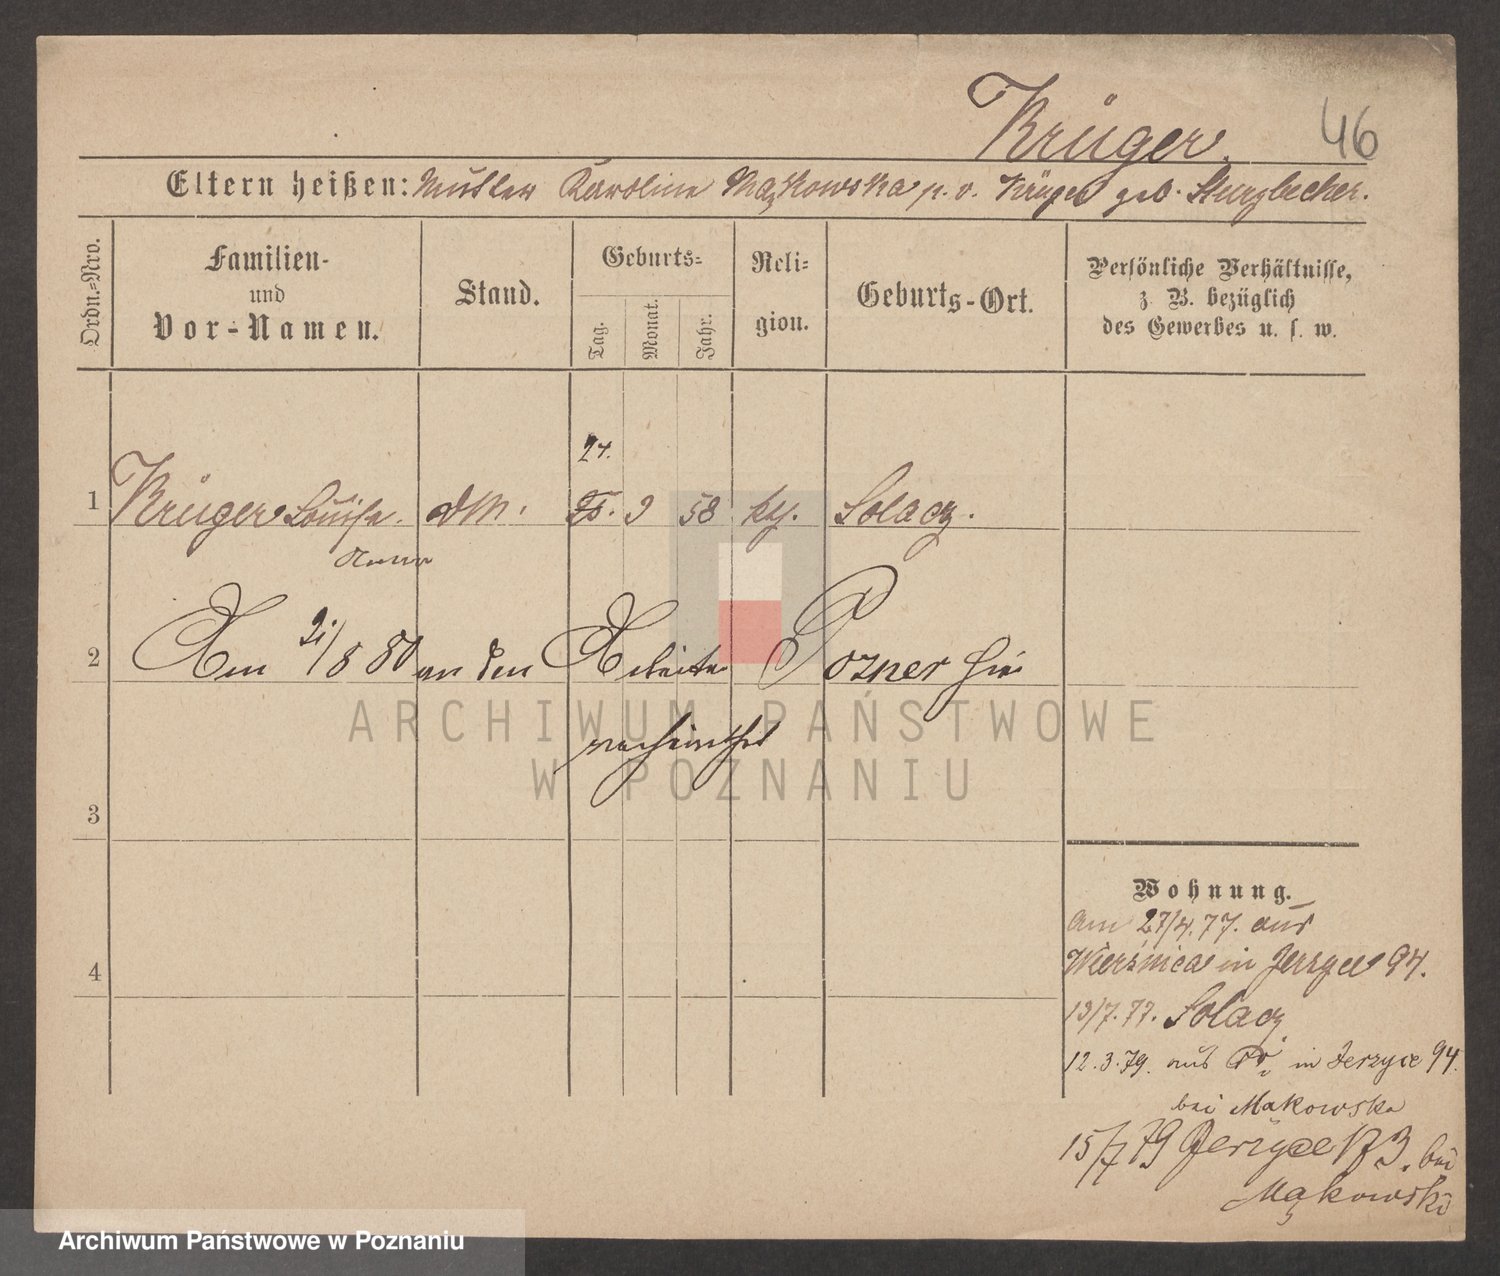 Krüger.
46
Eltern heißen: Mutter Karoline Mązkowska p. v. Krüger geb. Sturzbecher.
Ordn.=Nro.
Familien-
und
Vor-Namen.
Stand.
Geburts=
Tag.
Monat.
Jahr.
Reli=
gion.
Geburts-Ort.
Persönliche Verhältnisse,
z. B. bezüglich
des Gewerbes u. s. w.
24.
1 Krüger Louise. dM. 25. 9 58 ky. Solacz.
Anna
2 Am 21/8 80 an den Arbeiter Pozner hier
verheirathet
3
4
Wohnung.
am 27/4. 77. aus
Wierśnica in Jerzyce 94.
19/7. 77. Solacz
12.3.79. aus in Jerzyce 94.
bei Mąkowska
15/7 79 Jerzyce 173. bei
Mąkowski
ARCHIWUM PAŃSTWOWE
W POZNANIU
Archiwum Państwowe w Poznaniu